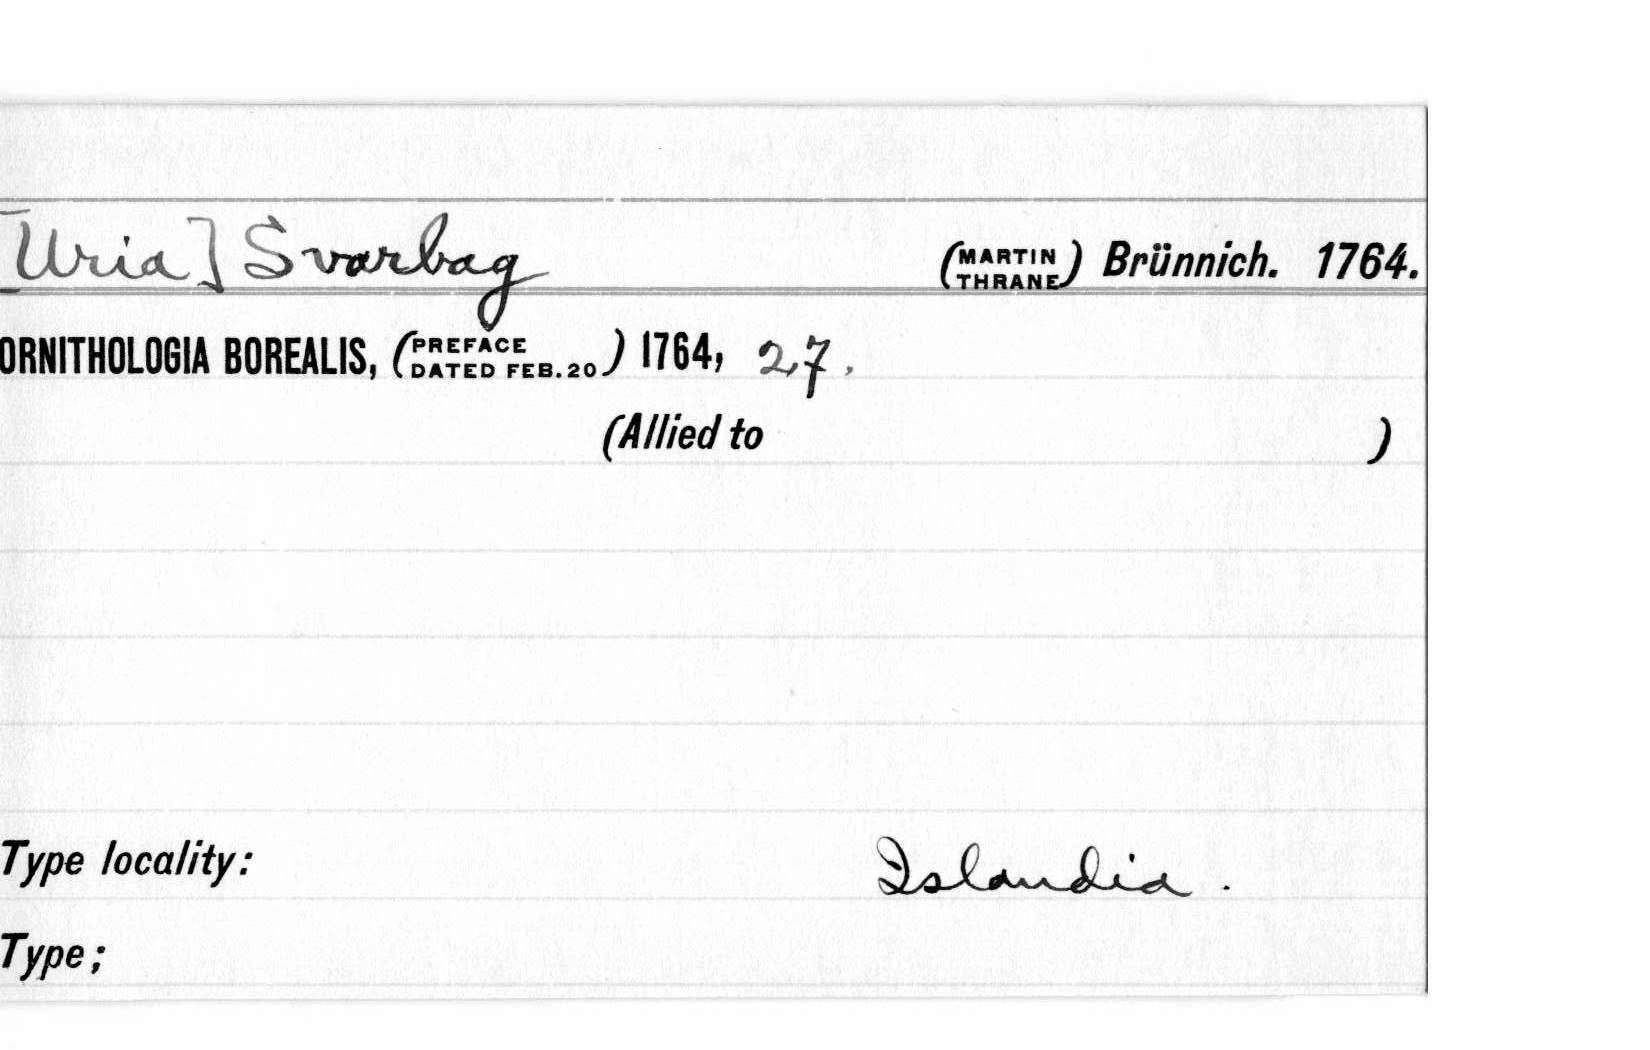 [Uria] Svarbag (MARTIN THRANE) Brünnich. 1764.
ORNITHOLOGIA BOREALIS, (PREFACE DATED FEB. 20) 1764, 27.
(Allied to )
Type locality: Islandia.
Type;